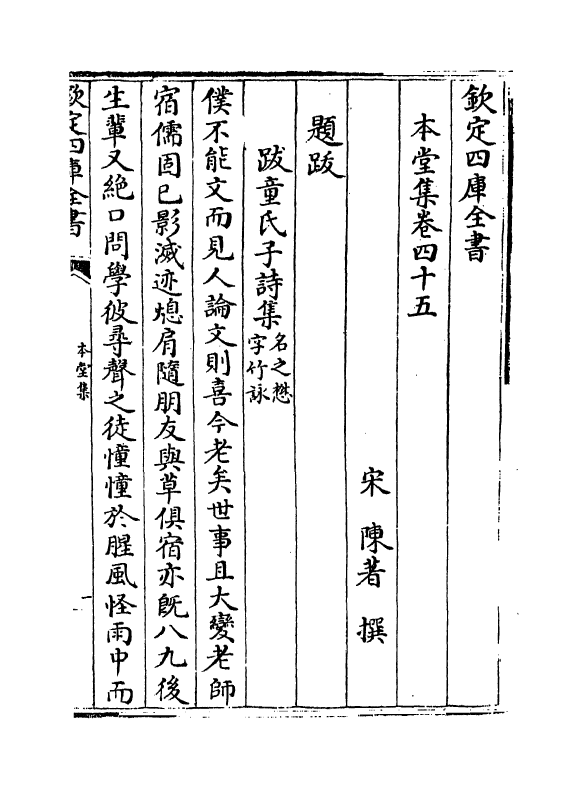 欽定四庫全書
本堂集卷四十五
宋　陳著　撰
題跋
跋童氏子詩集名之懋
字竹詠
僕不能文而見人論文則喜今老矣世事且大變老師
宿儒固已影滅迹熄肩隨朋友與草俱宿亦既八九後
生輩又絶口問學彼尋聲之徒憧憧於腥風怪雨中而
欽定四庫全書
本堂集
一